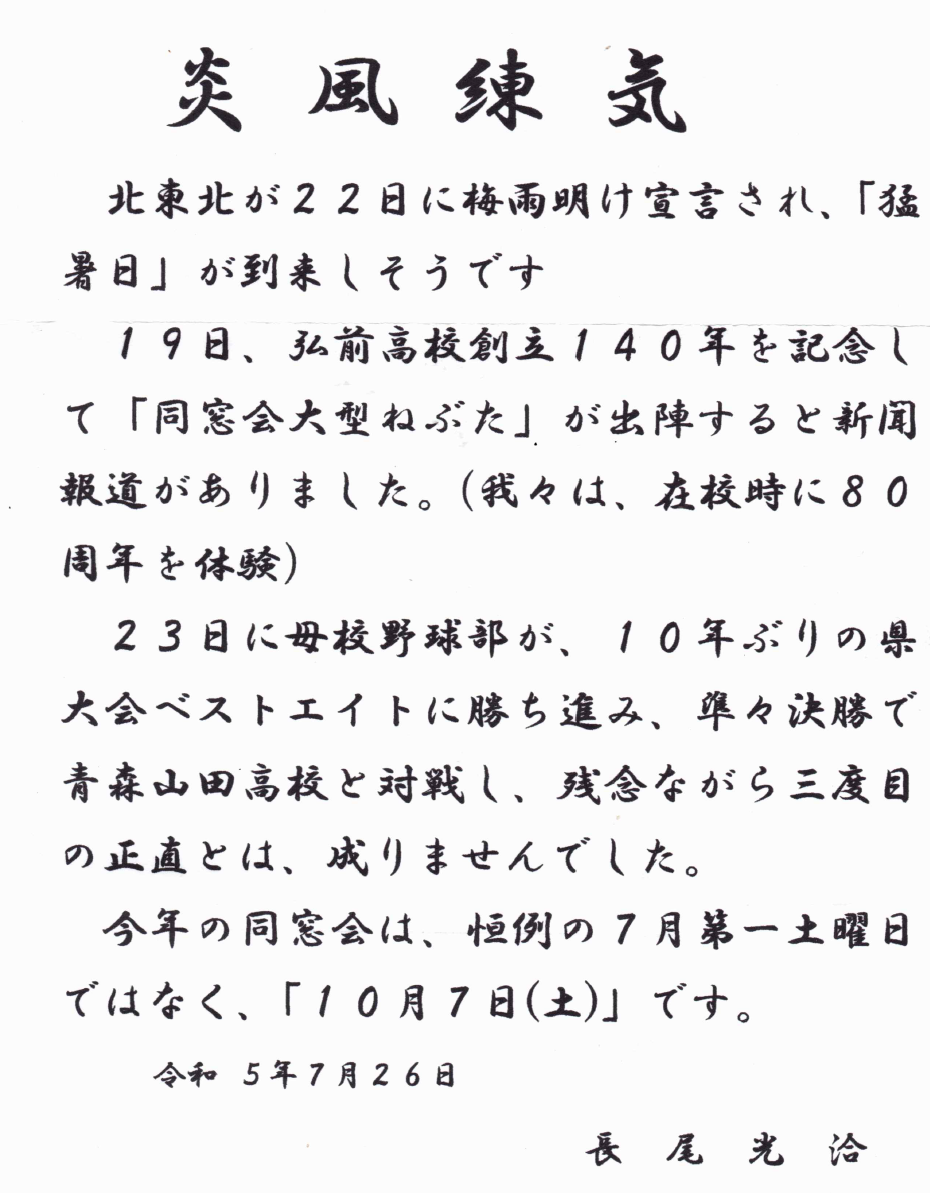 炎風練気
北東北が22日に梅雨明け宣言され、「猛
暑日」が到来しそうです
19日、弘前高校創立140年を記念し
て「同窓会大型ねぶた」が出陣すると新聞
報道がありました。(我々は、在校時に80
周年を体験)
23日に母校野球部が、10年ぶりの県
大会ベストエイトに勝ち進み、準々決勝で
青森山田高校と対戦し、残念ながら三度目
の正直とは、成りませんでした。
今年の同窓会は、恒例の7月第一土曜日
ではなく、「10月7日(土)」です。
令和 5年7月26日
長尾光洽